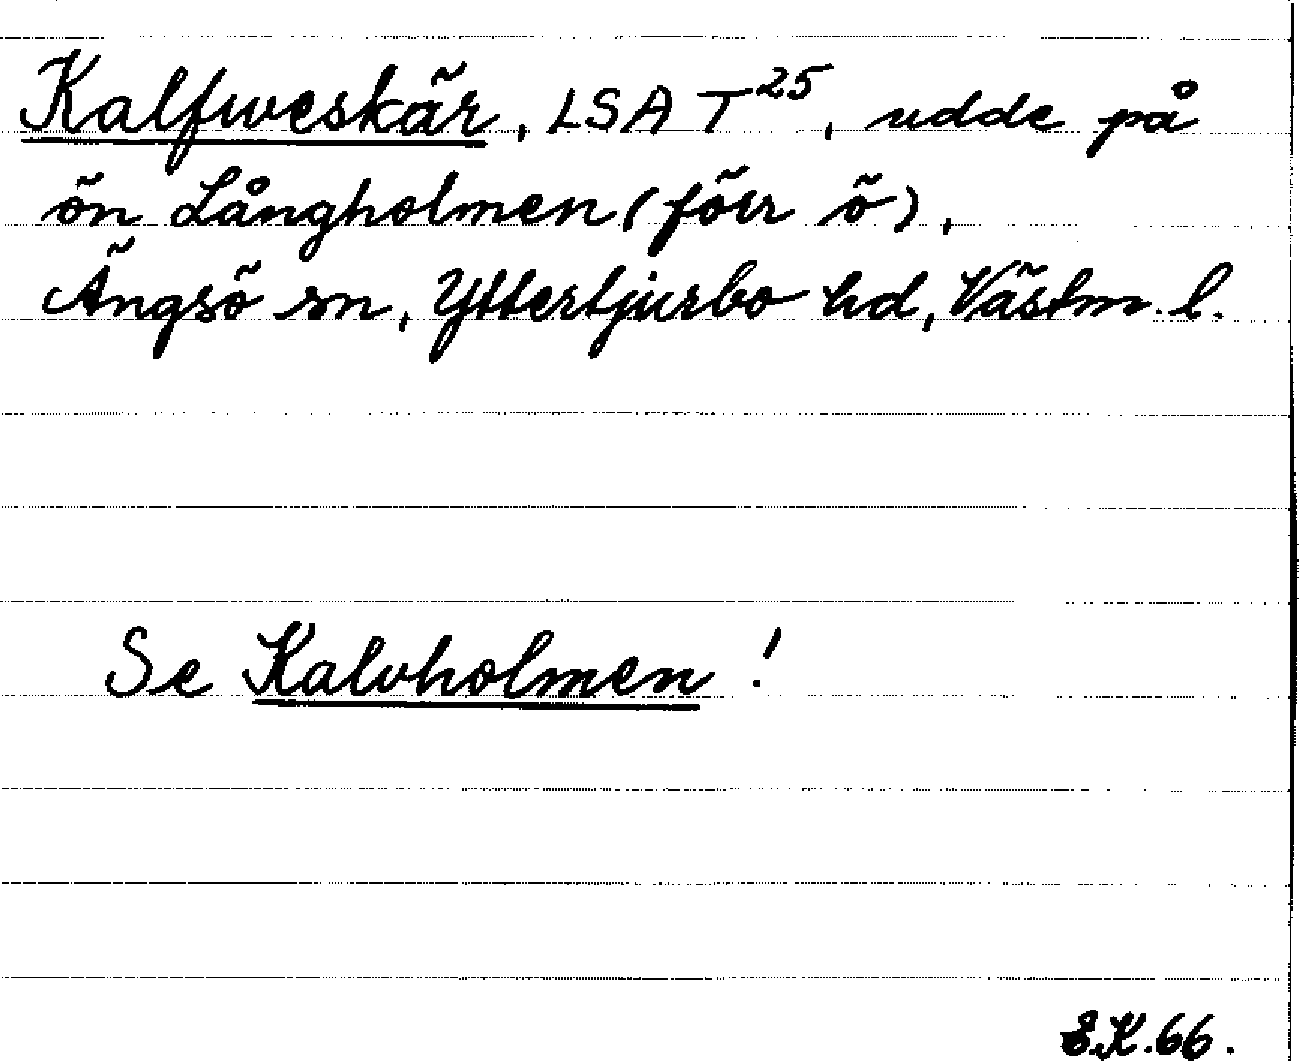 Kalfweskär, LSA T²⁵, udde på
ön Långholmen (förr ö),
Ängsö sn, Yttertjurbo hd, Västm. l.
Se Kalvholmen!
E.K. 66.